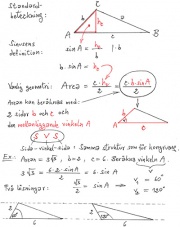 Standard-
beteckning:
C
b
a
h_c
A
c
B
Sinusens
definition:
sin A = h_c / b | · b
b · sin A = h_c
Vanlig geometri: Area = c · h_c / 2 = c · b · sin A / 2
Arean kan beräknas med
2 sidor b och c och
den mellanliggande vinkeln A
b
A
c
S V S
Sida - vinkel - sida : Samma struktur som för kongruens.
Ex: Arean = 3√3, b = 2, c = 6. Beräkna vinkeln A
3√3 = 6 · 2 · sin A / 2
√3 / 2 = sin A
V₁ = 60°
V₂ = 120°
Två lösningar:
2
60°
6
2
120°
6